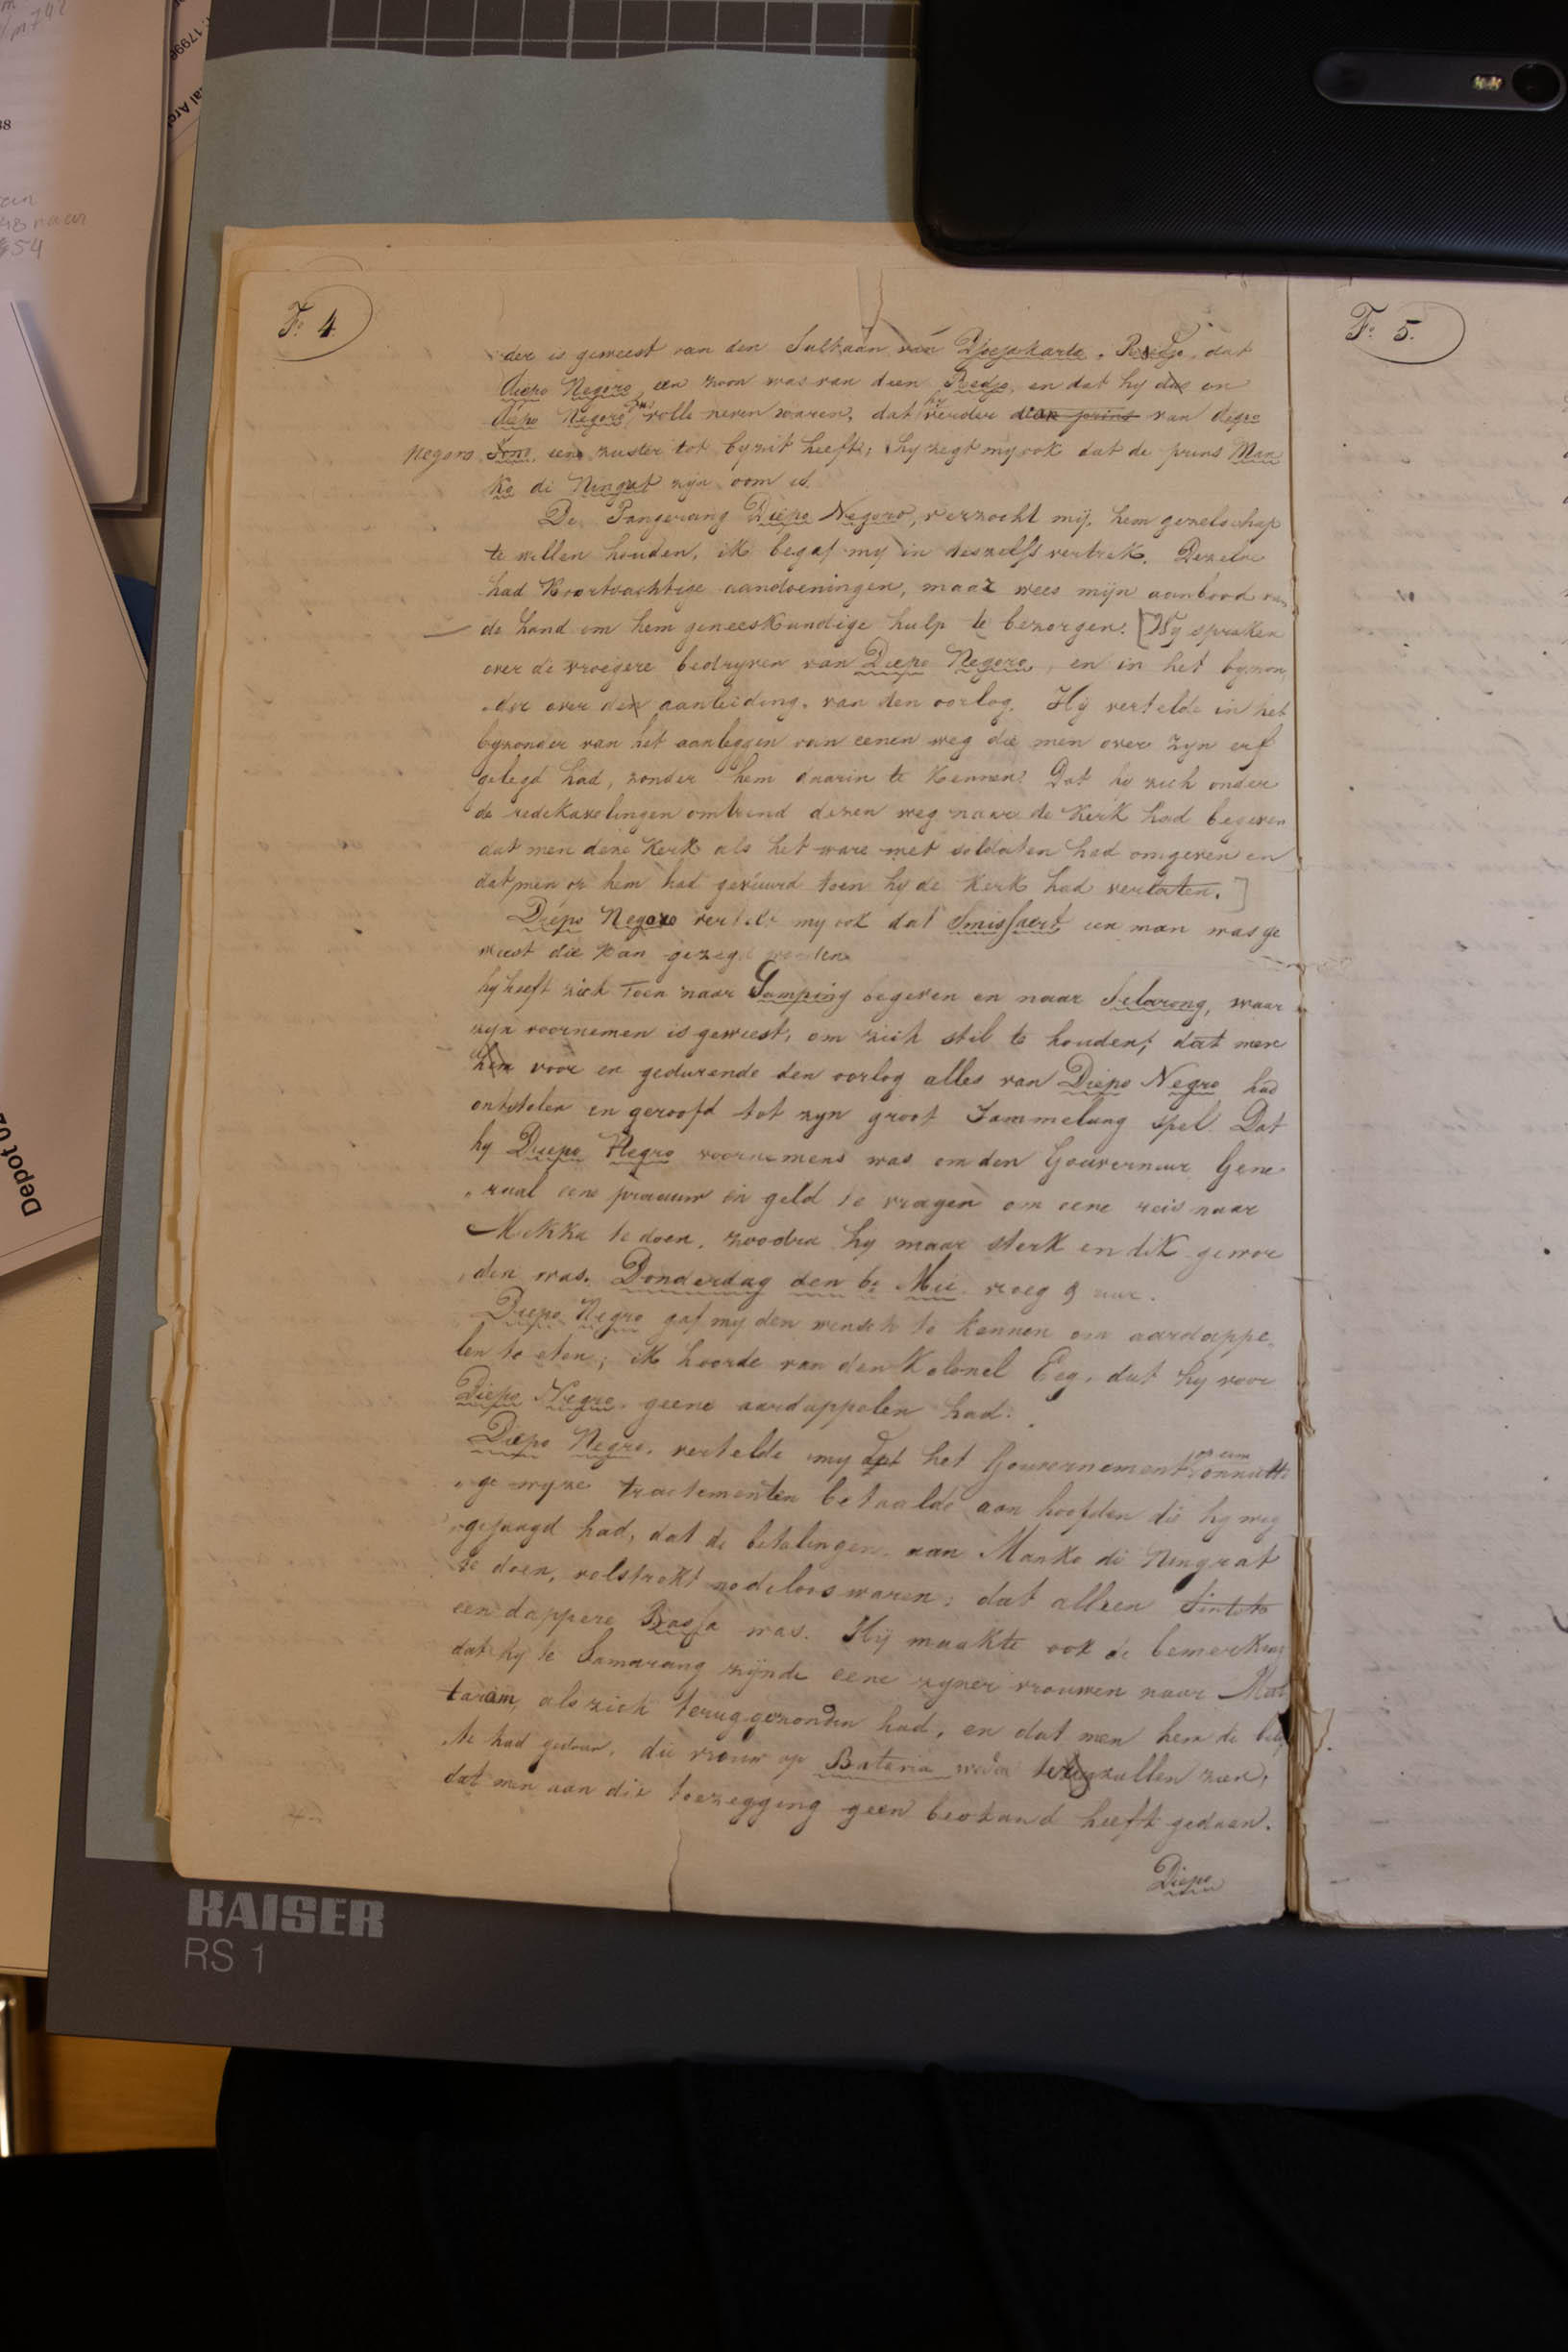 Fo 4.
der is geweest van den Sultaan van Djogokarta, Radja, dat
Diepo Negoro een zoon was van dien Radja, en dat hy dus en
Diepo Negoro volle neven waren, dat hy verder dien prins van Diepo
Negoro Som een zuster tot byzit heeft; hy zegt my ook dat de prins Man
ko di Ningrat zijn oom is.
De Pangerang Diepo Negoro, verzocht mij, hem gezelschap
te willen houden, ik begaf my in deszelfs vertrek. Dezelve
had Koortsachtige aandoeningen, maar wees mijn aanbood van
de hand om hem geneeskundige hulp te bezorgen. [Wy spraken
over de vroegere bedryven van Diepo Negoro, en in het byzon
der over den aanleiding, van den oorlog. Hij vertelde in het
byzonder van het aanleggen van eenen weg die men over zyn erf
gelegd had, zonder hem daarin te kennen. Dat hy zich onder
de redekavelingen omtrend dezen weg naar de Kerk had begeven
dat men deze Kerk als het ware met soldaten had omgeven en
dat men op hem had gevuurd toen hy de Kerk had verlaten.]
Diepo Negoro vertelde my ook dat Smissaert een man was ge
weest die kan gezegd worden
hy heeft zich toen naar Gamping begeven en naar Selarong, waar
zyn voornemen is geweest, om zich stil te houden; dat men
hem voor en gedurende den oorlog alles van Diepo Negro had
ontstolen en geroofd tot zyn groot Gammelang spel. Dat
hy Diepo Negro voornemens was om den Gouverneur Gene
raal eene praauw en geld te vragen om eene reis naar
Mekka te doen, zoodra hy maar sterk en dik gewor
den was. Donderdag den 6e Mei vroeg 9 uur.
Diepo Negro gaf my den wensch te kennen om aardappe
len te eten; ik hoorde van den Kolonel Eeg, dat hy voor
Diepo Negro geene aardappelen had.
Diepo Negro, vertelde my dat het Gouvernement op een onnutti
ge wyze tractementen betaalde aan hoofden die hy weg
gejaagd had, dat de betalingen, aan Manko di Ningrat
te doen, volstrekt nodeloos waren; dat alleen Sintot
een dappere Bassa was. Hij maakte ook de bemerking
dat hy te Samarang zijnde eene zyner vrouwen naar Mat
taram, als ziek teruggezonden had, en dat men hem de belof
te had gedaan, die vrouw op Batavia weder te zullen zien,
dat men aan die toezegging geen bestand heeft gedaan.
Diepo
Fo 5.
KAISER
RS 1